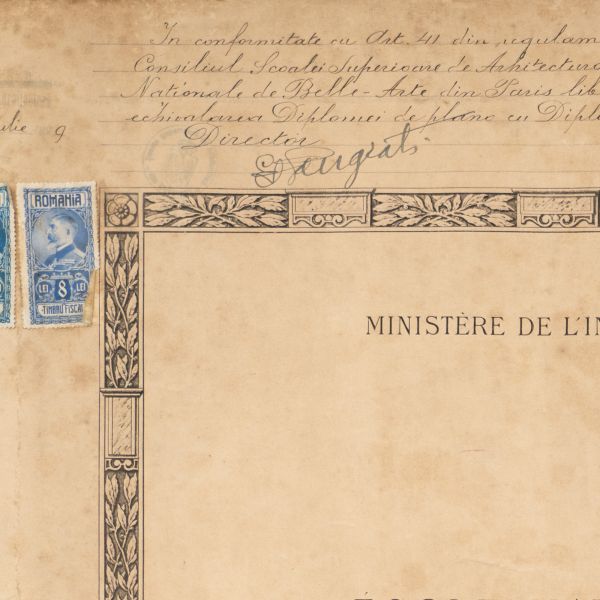 In conformitate cu Art. 41 din regulam
Consiliul Scoalei Superioare de Arhitectura
Nationale de Belle-Arte din Paris lib
echivalarea Diplomei de plano cu Diplo
Director
ulie 9
ROMANIA
LEI 8 LEI
TIMBRU FISCAL
MINISTÈRE DE L'IN